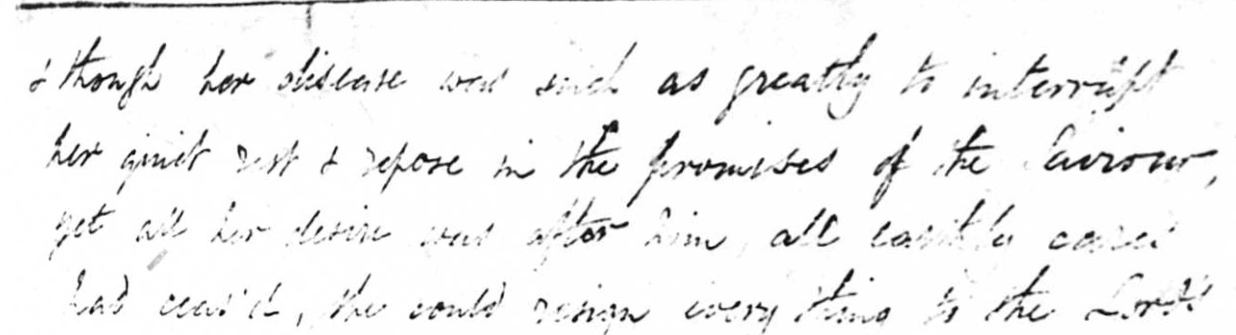 & though her disease was such as greatly to interrupt
her quiet rest & repose in the promises of the Saviour,
yet all her desire was after him, all earthly cares
had ceas'd, she could resign every thing to the Lord's